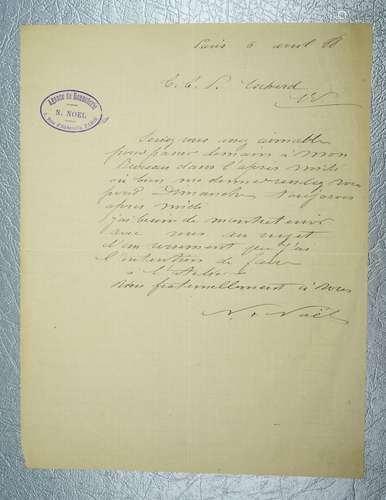 Paris 6 avril 88
T. C. F.
Agence de
N. NOEL
Serez vous assez aimable
pour passer demain à mon
Bureau dans l'après midi
ou bien me donner rendez vous
pour Dimanche toujours
après midi
J'ai besoin de m'entretenir
avec vous au sujet
d'un versement que j'ai
l'intention de faire
à l'atelier
Bien fraternellement à vous
N. Noël